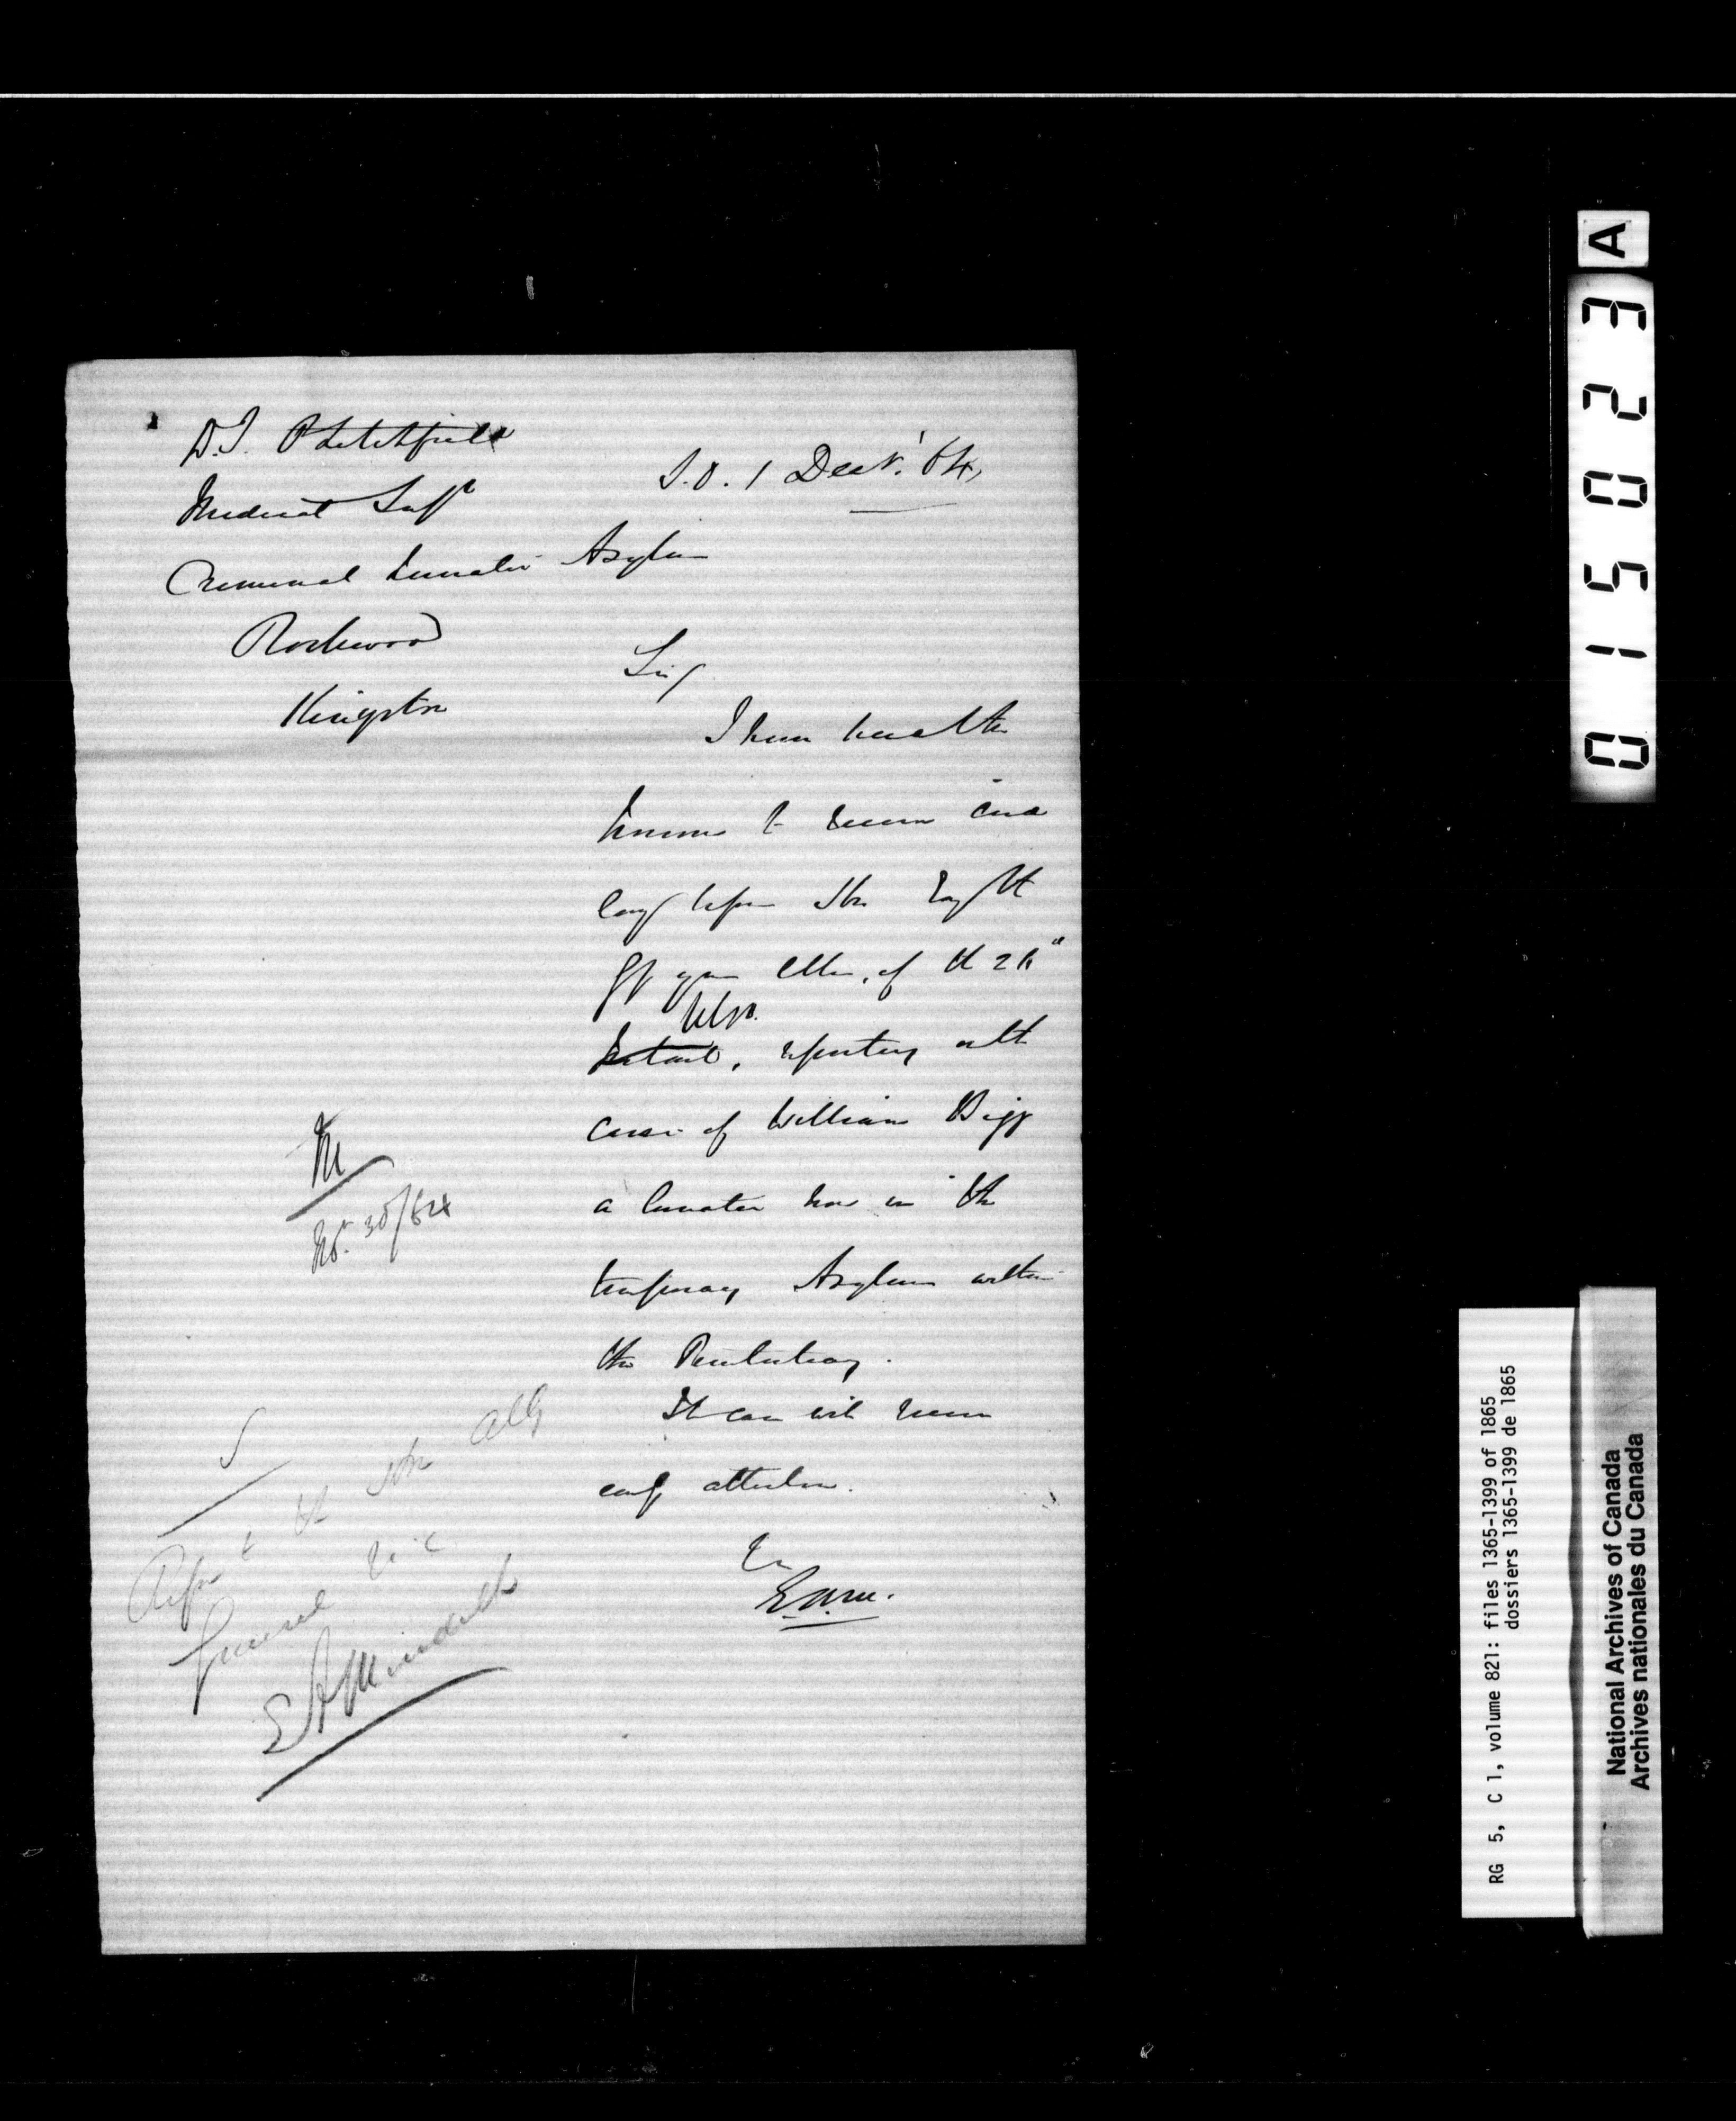 D. J. P. Litchfield
Medical Supt
Criminal Lunatic Asylum
Rockwood
Kingston
S.O. 1 Decr. '64
Sir/
I have had the
honour to receive and
lay before the
GG your letter, of the 26"
ulto.
Instant, reporting on the
case of William Bigg
a lunatic now in the
temporary Asylum within
the Penitentiary.
It case will receive
early attention.
EAM.
M
Nov. 30/64
Refer to the Hon Atty
General U.C
E A Meredith
A
015023
RG 5, C 1, volume 821: files 1365-1399 of 1865
dossiers 1365-1399 de 1865
National Archives of Canada
Archives nationales du Canada